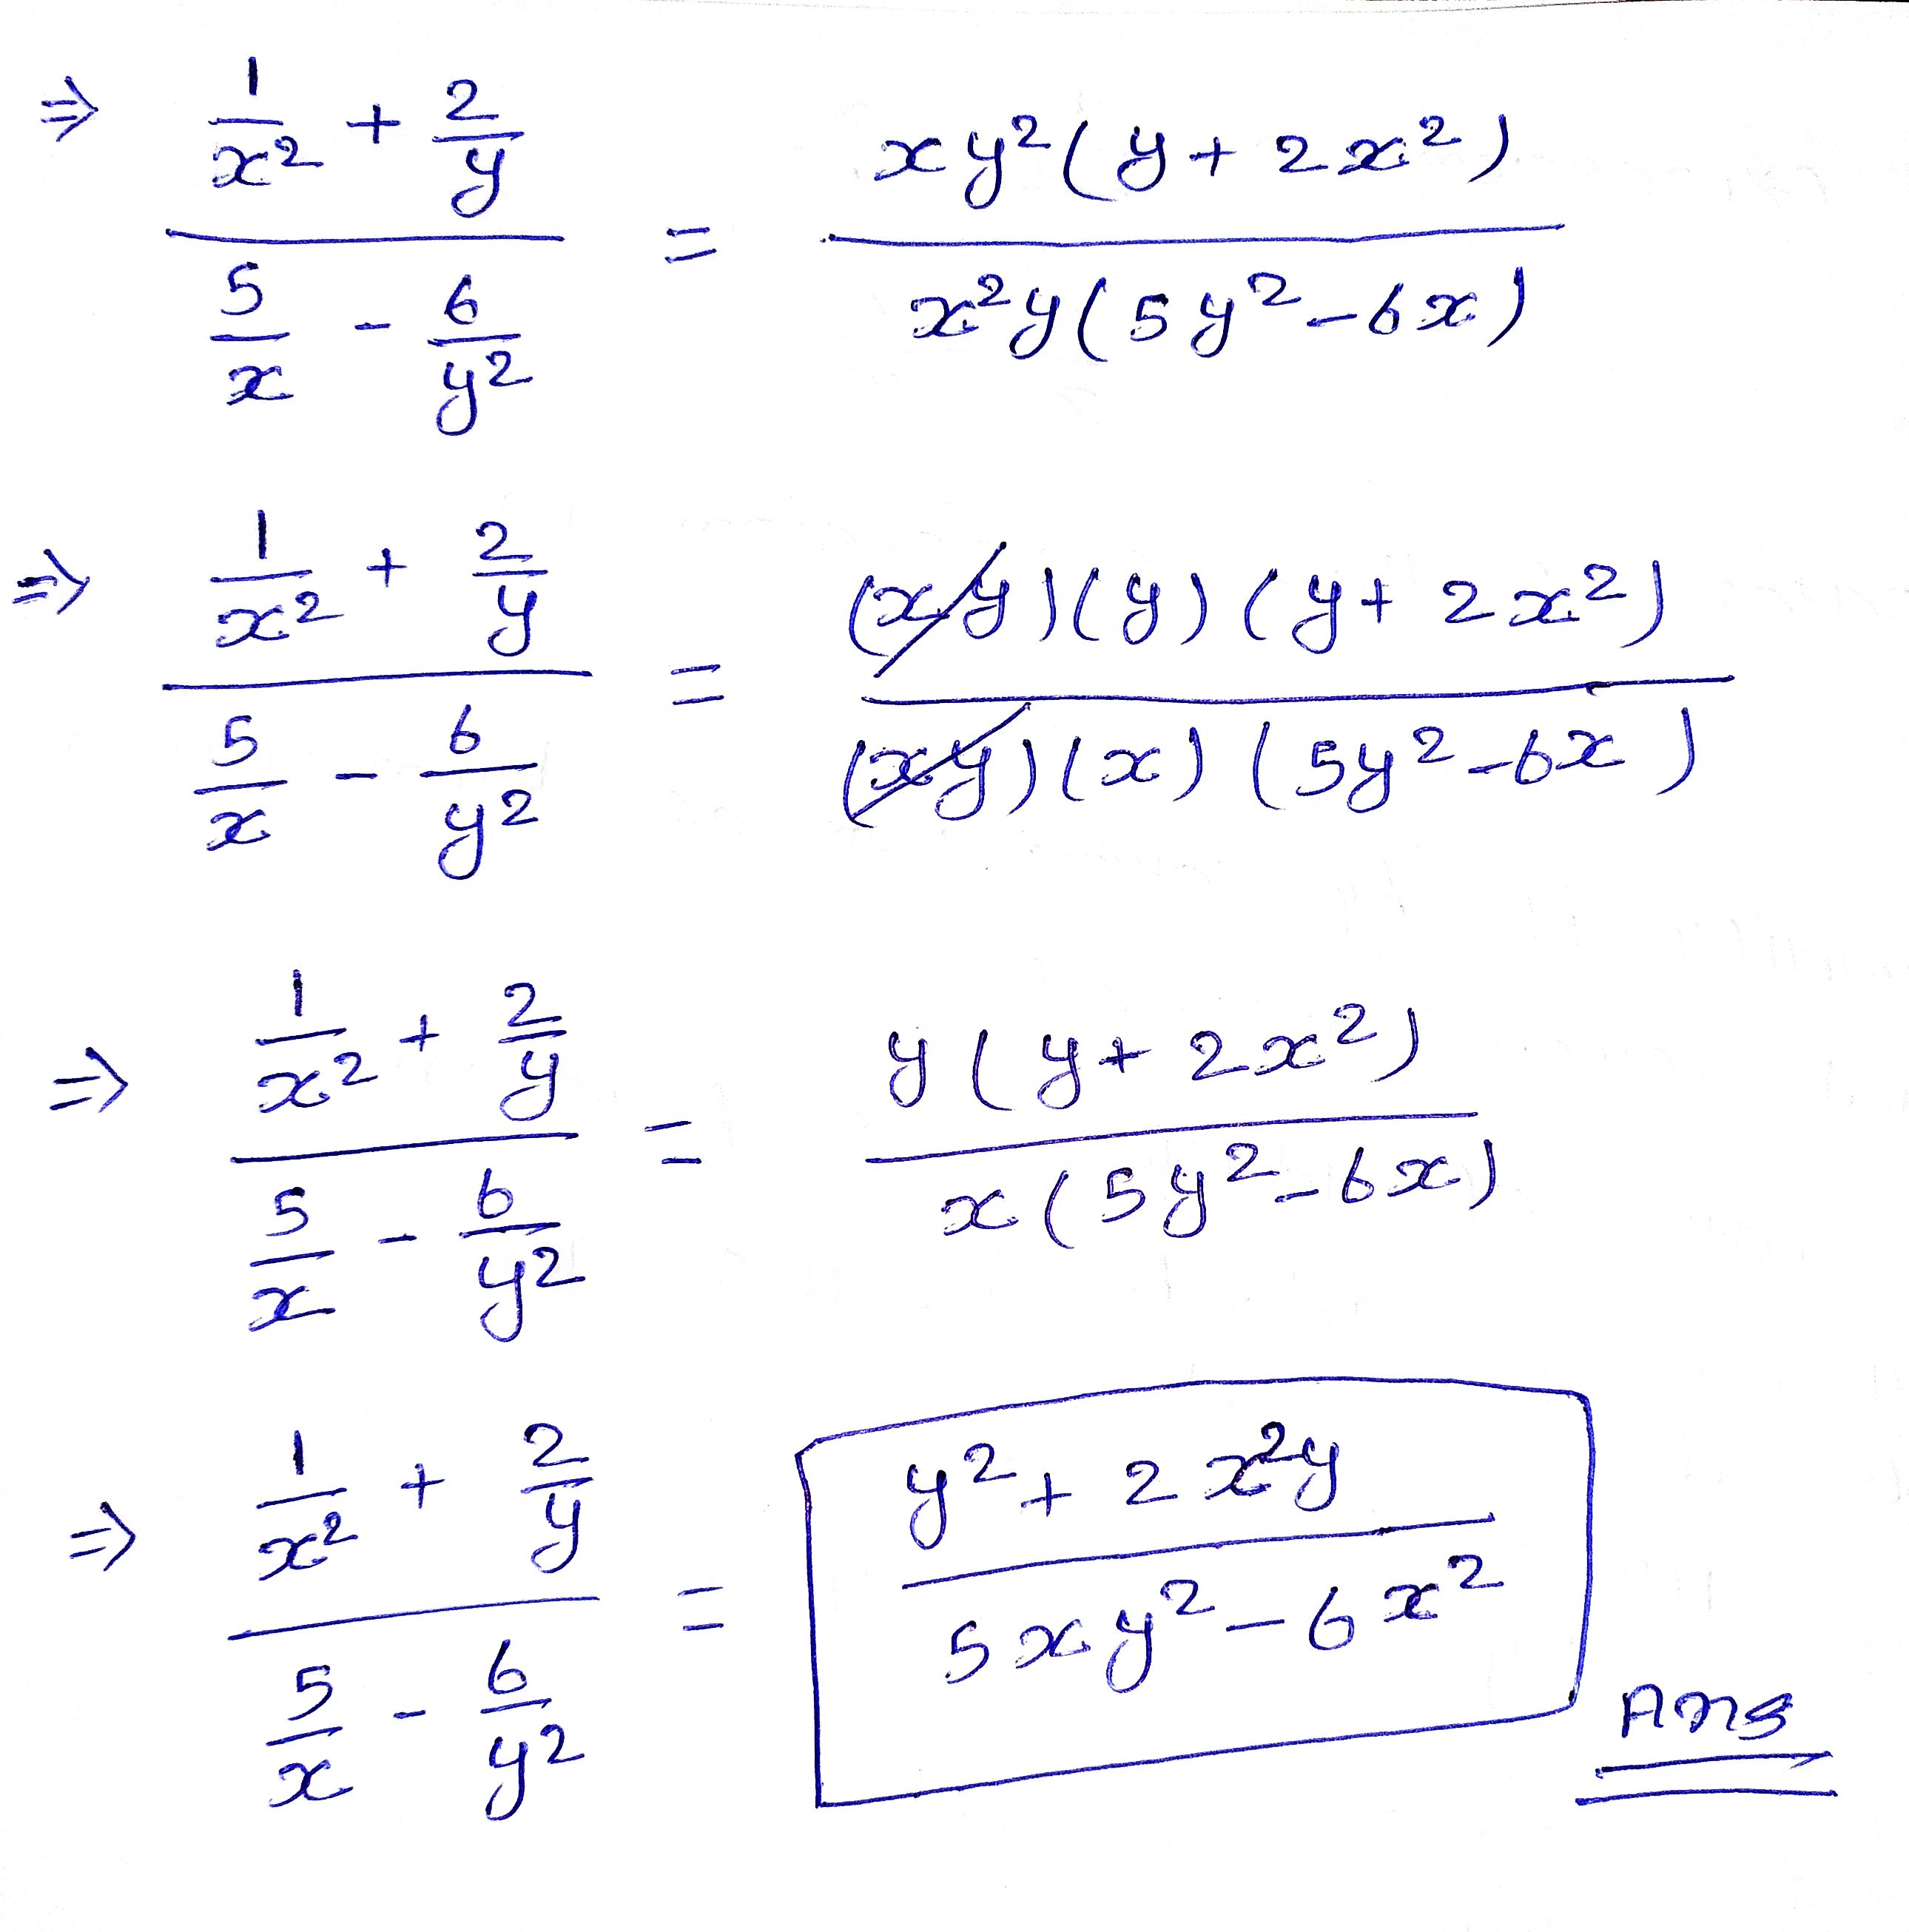 ⇒ (1/x² + 2/y) / (5/x - 6/y²) = xy²(y + 2x²) / x²y(5y² - 6x)
⇒ (1/x² + 2/y) / (5/x - 6/y²) = (xy)(y)(y + 2x²) / (xy)(x)(5y² - 6x)
⇒ (1/x² + 2/y) / (5/x - 6/y²) = y(y + 2x²) / x(5y² - 6x)
⇒ (1/x² + 2/y) / (5/x - 6/y²) = y² + 2x²y / 5xy² - 6x²
Ans